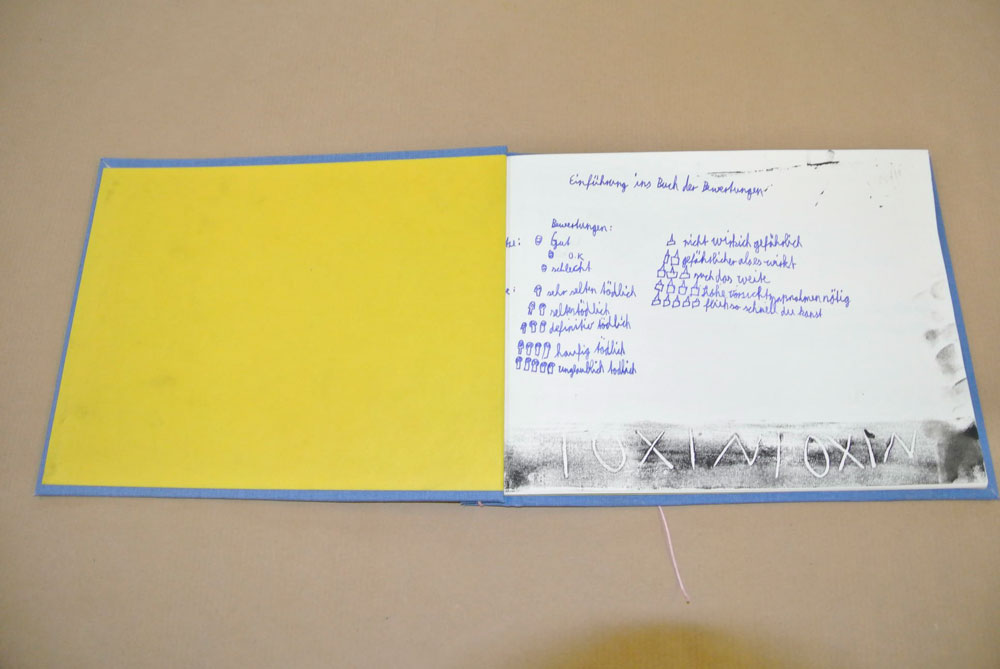 Einführung ins Buch der Bewertungen
Bewertungen:
gut
O.K
schlecht
sehr selten tödlich
selten tödlich
definitiv tödlich
haufig tödlich
unglaublich tödlich
nicht wirklich gefährlich
gefährlicher als es wirkt
such das weite
flieh so schnell du kanst
TOXINTOXIN